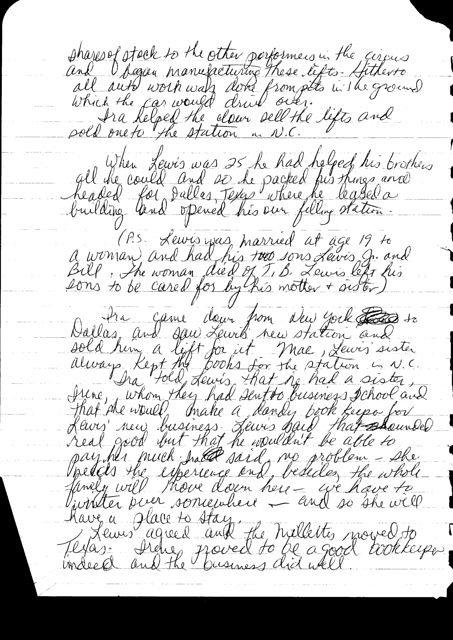 shares of stock to the other performers in the circus
and began manufacturing these lifts. Hitherto
all auto work was done from pits in the ground
which the car would drive over.
Ira helped the clown sell the lifts and
sold one to the station in N.C.
When Lewis was 25 he had helped his brothers
all he could and so he packed his things and
headed for Dallas, Texas where he leased a
building and opened his own filling station.
(P.S. Lewis was married at age 19 to
a woman and had his two sons Lewis Jr. and
Bill. The woman died of T.B. Lewis left his
sons to be cared for by his mother & sister)
Ira came down from New York to
Dallas, and saw Lewis' new station and
sold him a lift for it. Mae, Lewis' sister
always kept the books for the station in N.C.
Ira told Lewis that he had a sister,
Irene, whom they had sent to business school and
that she would make a dandy book keeper for
Lewis' new business. Lewis said that sounded
real good but that he wouldn't be able to
pay her much. said, no problem - she
needs the experience and, besides, the whole
family will move down here - we have to
winter over somewhere - and so she will
have a place to stay.
Lewis agreed and the Mellettes moved to
Texas. Irene proved to be a good bookkeeper
indeed and the business did well.